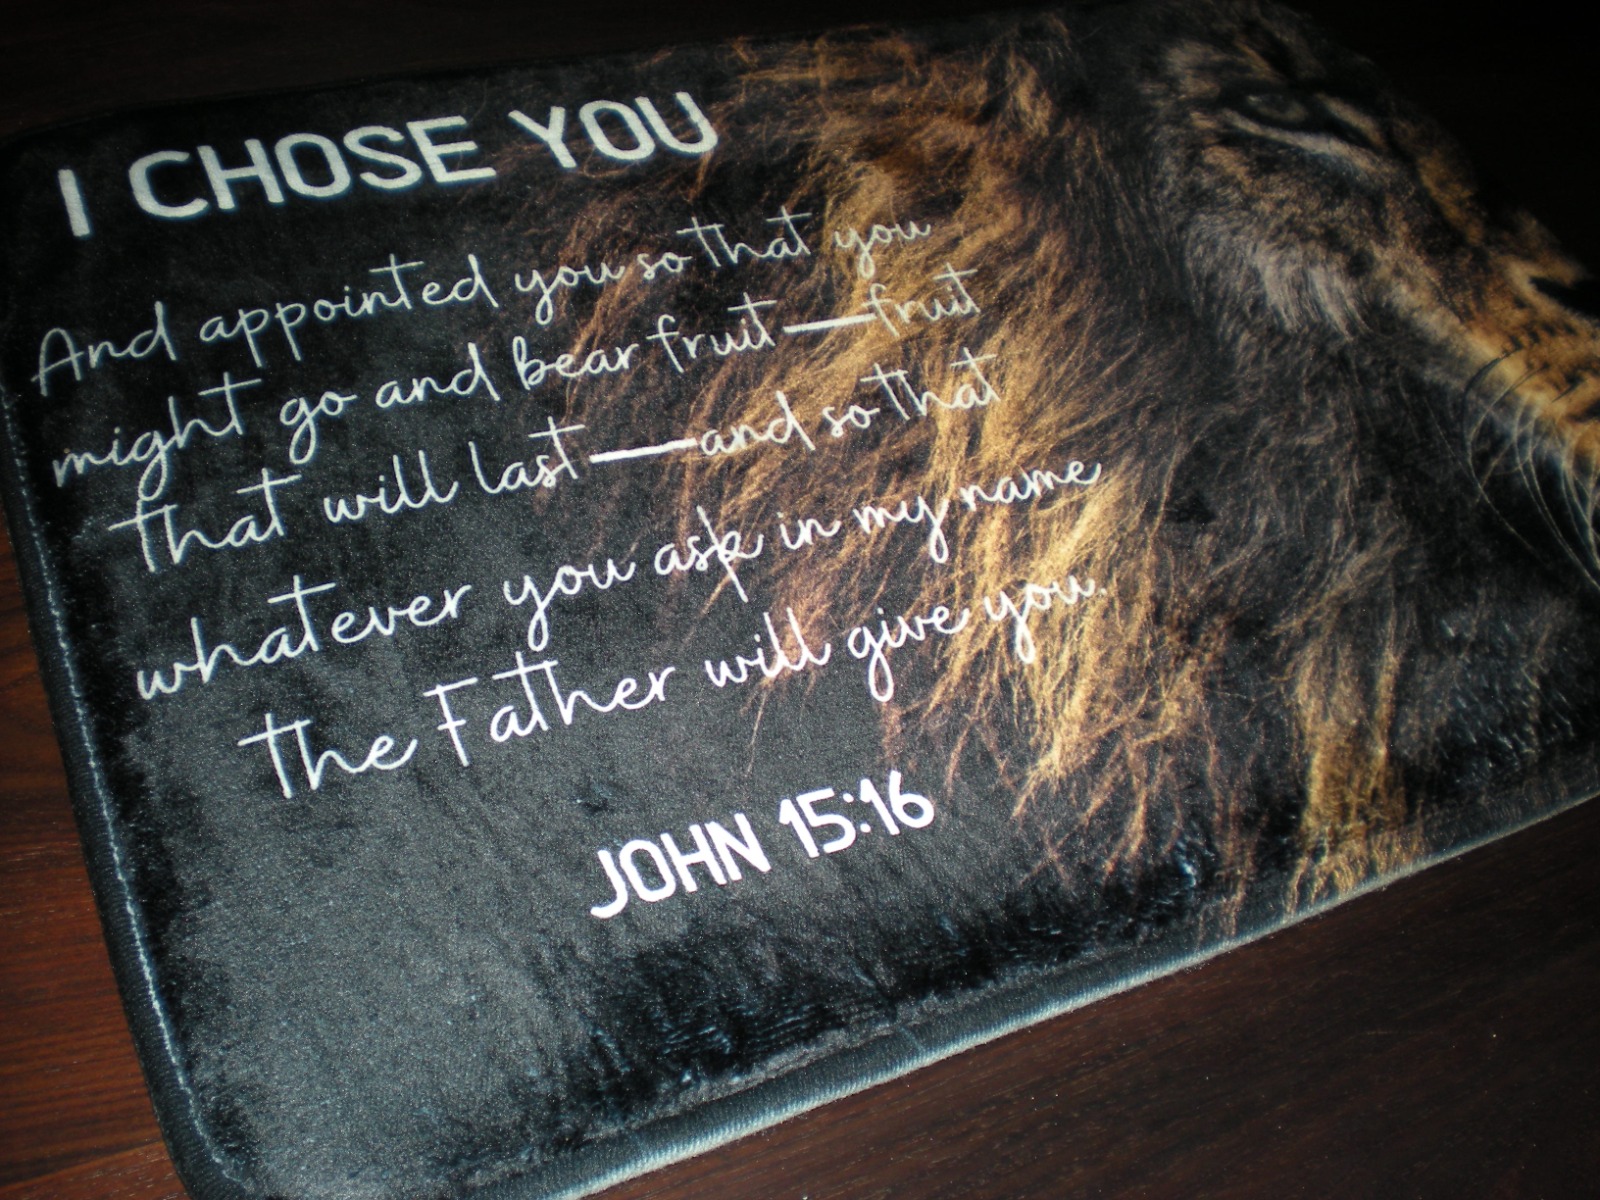 I CHOSE YOU
And appointed you so that you
might go and bear fruit—fruit
that will last—and so that
whatever you ask in my name
the Father will give you.
JOHN 15:16